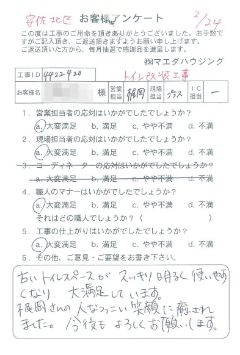 安佐北区 お客様アンケート 2/24
この度は工事のご用命を頂きありがとうございました。お手数で
すがご記入頂き、ご返送頂きますようお願い申し上げます。
ご返送頂いた方から、毎月抽選で感謝品を進呈します。
㈱マエダハウジング
工事ID トイレ改装工事
お客様名 様 営業担当 梶岡 現場担当 IC担当 ー
1. 営業担当者の応対はいかがでしたでしょうか?
a. 大変満足 b. 満足 c. やや不満 d. 不満
2. 現場担当者の応対はいかがでしたでしょうか?
a. 大変満足 b. 満足 c. やや不満 d. 不満
3. コーディネーターの応対はいかがでしたでしょうか?
a. 大変満足 b. 満足 c. やや不満 d. 不満
4. 職人のマナーはいかがでしたでしょうか?
a. 大変満足 b. 満足 c. やや不満 d. 不満
それはどの職人でしょうか? ( )
5. 工事の仕上がりはいかがでしたでしょうか?
a. 大変満足 b. 満足 c. やや不満 d. 不満
6. その他、ご意見・ご要望をお書き下さい。
古いトイレスペースが スッキリ 明るく 使いやす
くなり、大満足しています。
梶岡さんの 人なつっこい 笑顔に 癒され
ました。今後も よろしく お願いします。